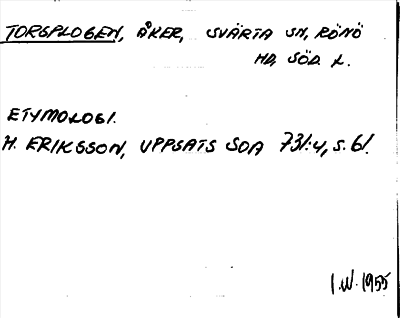 TORGPLOGEN, ÅKER, SVÄRTA SN, RÖNÖ
HD, SÖD. L.
ETYMOLOGI.
H. ERIKSSON, UPPSATS SOA 731:4, S. 61.
I.W. 1955